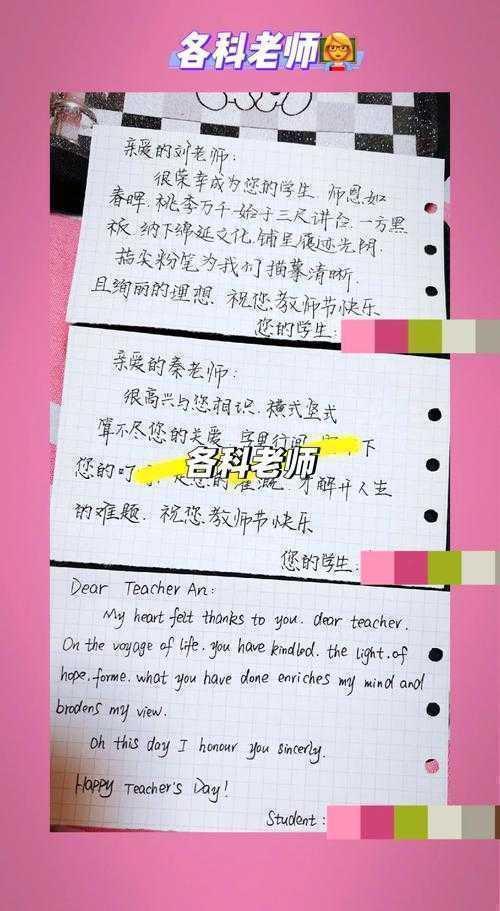 各科老师
亲爱的刘老师:
很荣幸成为您的学生.师恩如
春晖.桃李万千始于三尺讲台.一方黑
板.纳下绵延文化.铺呈履迹光阴.
指尖粉笔为我们描摹清晰.
且绚丽的理想.祝您.教师节快乐
您的学生:
亲爱的秦老师:
很高兴与您相识.横式竖式
算不尽您的关爱.字里行间 下
您的叮 是您的灌溉.才解开人生
各科老师
的难题.祝您.教师节快乐
您的学生:
Dear Teacher An:
My heart felt thanks to you. dear teacher.
On the voyage of life. you have kindled. the light.of
hope.forme. what you have done enriches my mind and
brodens my view.
Oh this day I honour you sincerly.
Happy Teacher's Day!
Student: